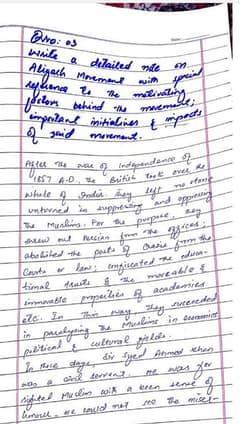 Qno: 03
Write a detailed note on
Aligarh Movement with special
reference to the motivating
factors behind the movement;
important initiatives & impacts
of said movement.
After the war of Independence of
1857 A.D., the British took over the
whole of India. They left no stone
unturned in suppressing and oppressing
the Muslims. For the purpose, they
threw out Persian from the offices;
abolished the posts of Qazis from the
Courts of law; confiscated the educa-
tional trusts & the moveable &
immovable properties of academies
etc. In this way, they succeeded
in paralysing the Muslims in economics
political & cultural fields.
In those days, Sir Syed Ahmed Khan
was a civil servent. He was far
sighted Muslim with a keen sense of
humour. He could not see the miser-